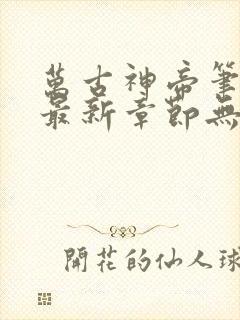 萬古神帝筆
最新章節無
開花的仙人球